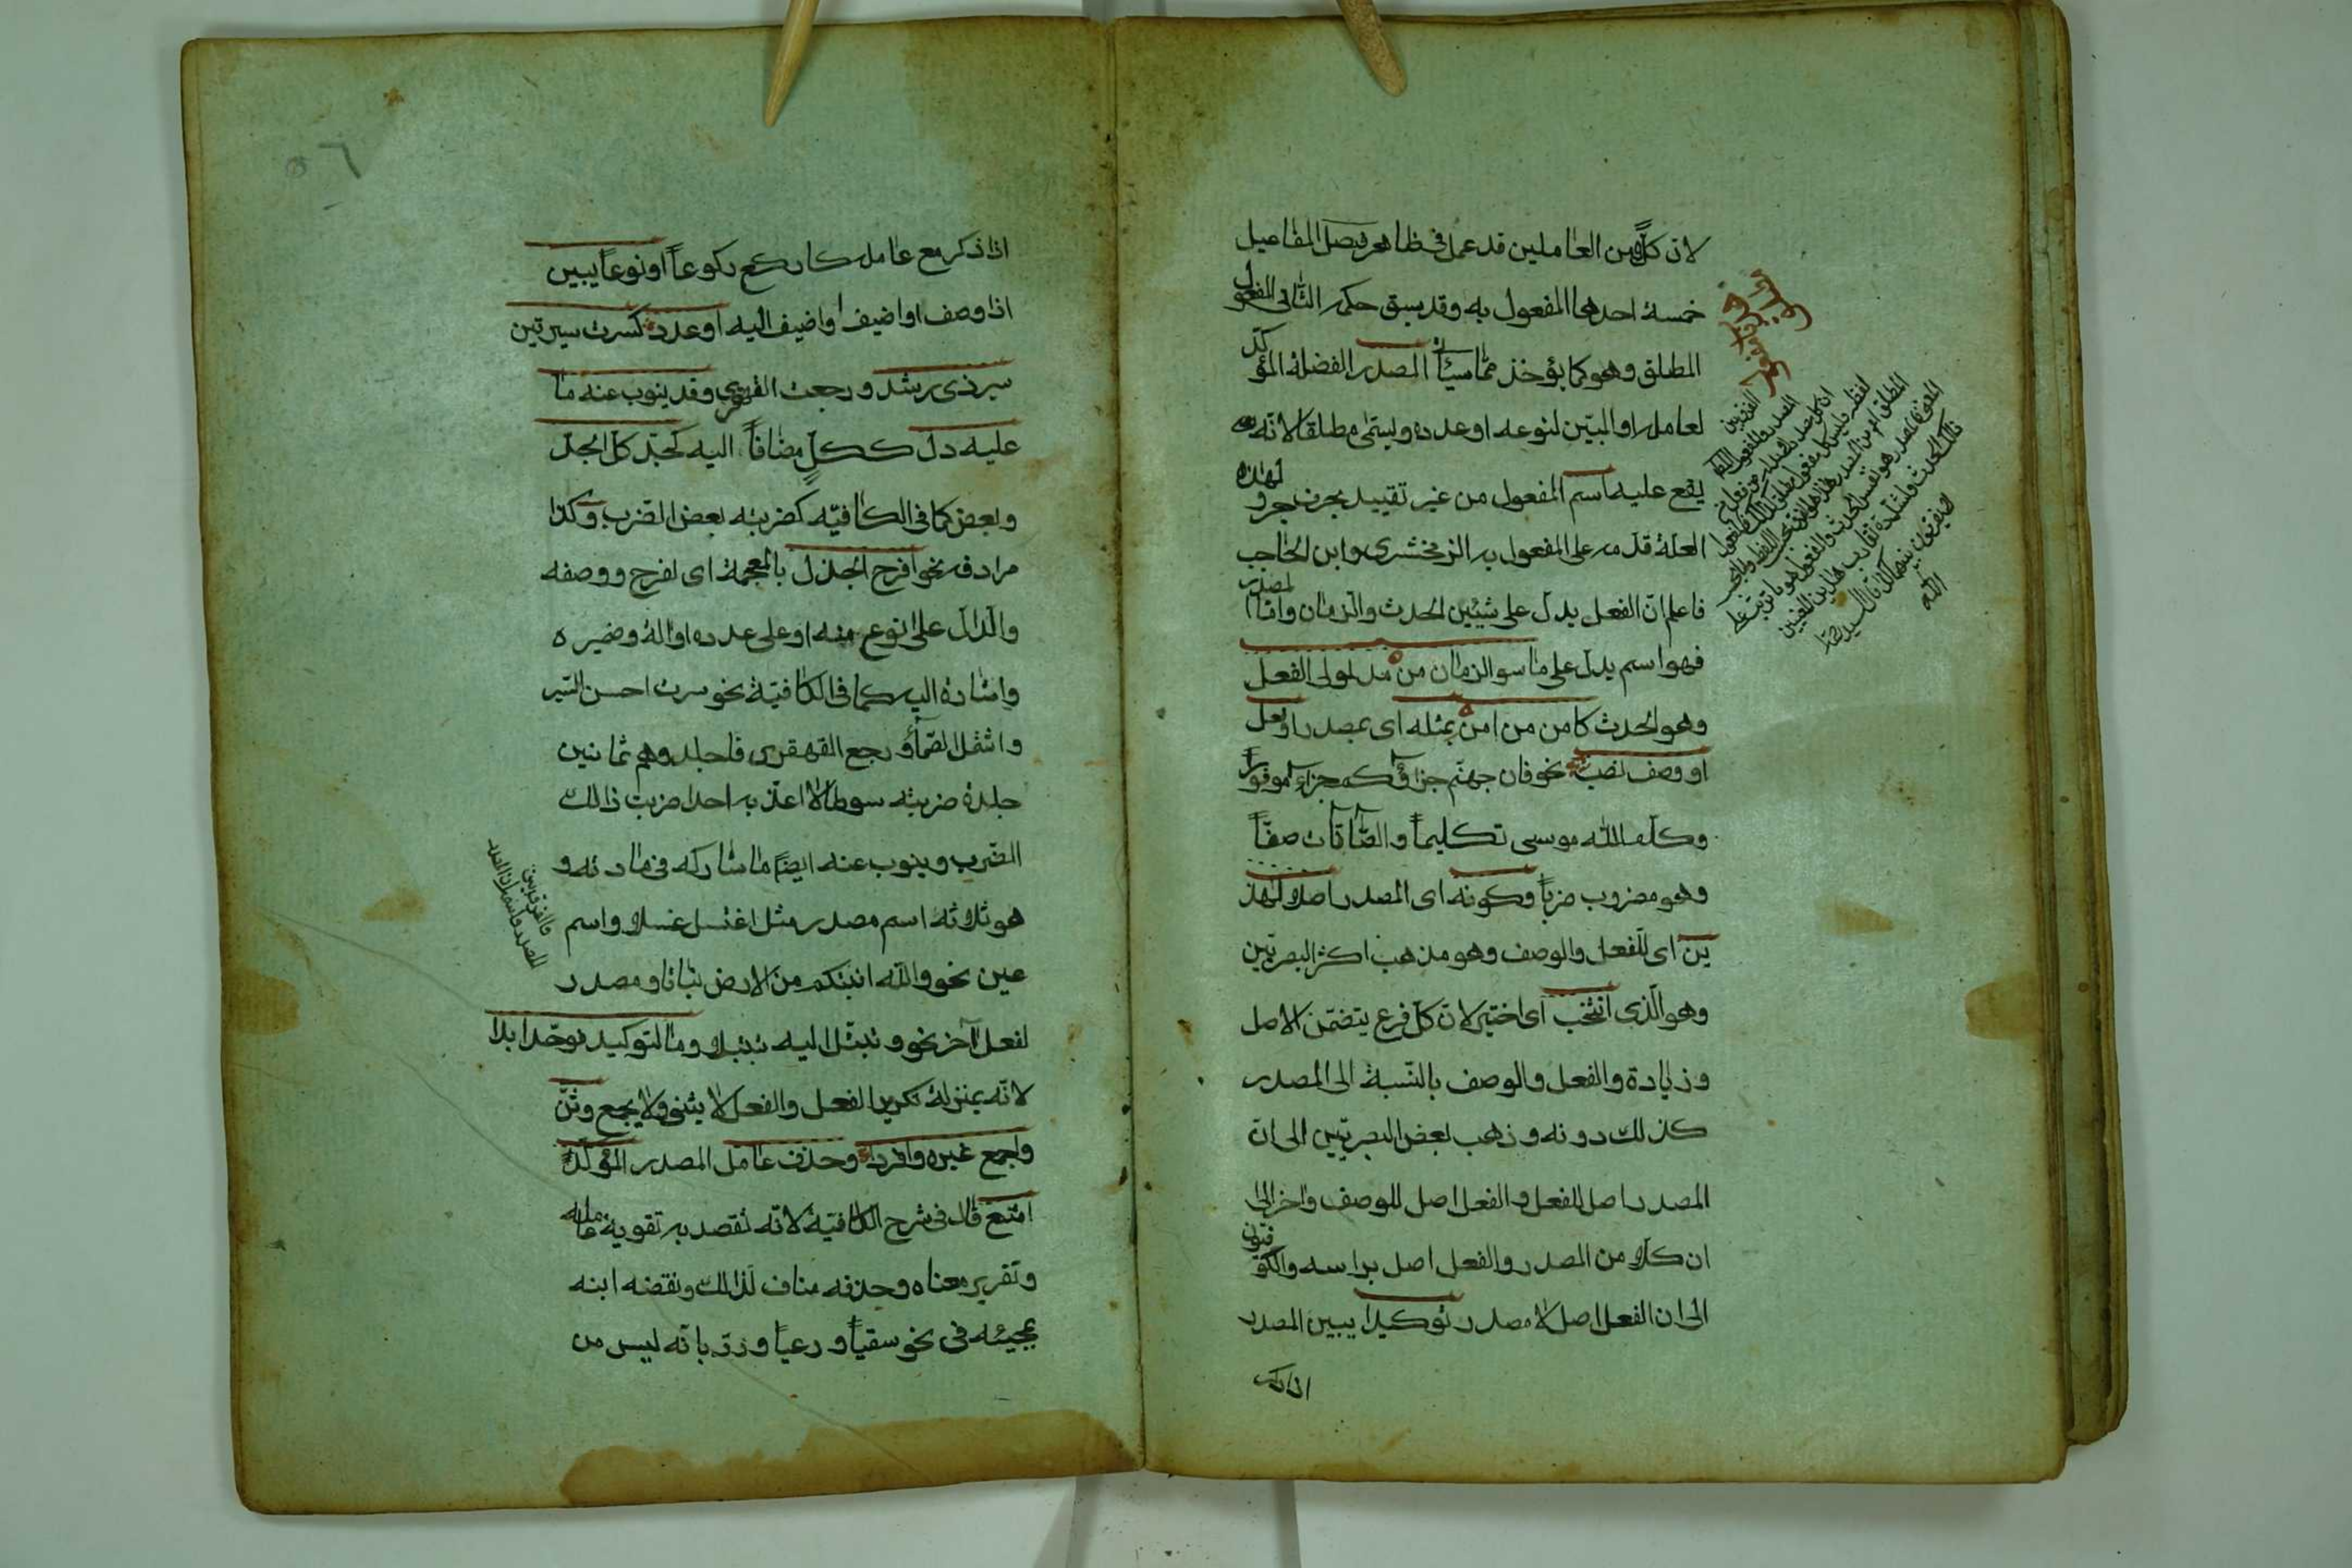 لان كلا من العاملين قد عمل فى ظاهر فصل المفاعيل
خمسة احدها المفعول به وقد سبق حكمه الثانى المفعول
المطلق وهو كما يؤخذ مما سيأتى المصدر الفضلة المؤكد
لعامله او المبيّن لنوعه او عدده ويسمّى مطلقا لانّه
يقع عليه اسم المفعول من غير تقييد بحرف جر و لهذه
العلة قدمه على المفعول به الزمخشرى وابن الحاجب
فاعلم انّ الفعل يدلّ على شيئين الحدث والزمان وامّا المصدر
فهو اسم يدلّ على ما سوا الزمان من مدلولى الفعل
وهو الحدث كامن من امن بمثله اى بمصدر او فعل
او وصف نصب نحو فان جهنّم جزاؤكم جزاءً موفوراً
وكلّم اللّه موسى تكليماً والصّافّات صفّاً
وهو مضروب ضرباً وكونه اى المصدر اصلا لهذ
ين اى للفعل والوصف وهو مذهب اكثر البصريّين
وهو الّذى انتخب اى اختير لانّ كلّ فرع يتضمّن الاصل
وزيادة والفعل والوصف بالنّسبة الى المصدر
كذلك دونه وذهب بعض البصريّين الى ان
المصدر اصل للفعل والفعل اصل للوصف واخر الى
ان كلا من المصدر والفعل اصل براسه والكوفيّون
الى ان الفعل اصل لا مصدر توكيدا يبين المصدر
اذا ذكر
اذا ذكر مع عامله كاركع ركوعاً او نوعاً يبين
اذا وصف او اضيف او اضيف اليه او عدد كسرت سيرتين
سير ذى رشد ورجعت القهقرى وقد ينوب عنه ما
عليه دلّ ككلٍّ مضافاً اليه كجدّ كلّ الجدّ
وبعض كما فى الكافيّه كضربته بعض الضرب وكذا
مرادفه نحو افرح الجذل بالمعجمة اى لفرح ووصفه
والدّال على نوع منه او على عدده او آلة وضميره
واشارة اليه كما فى الكافيّة نحو سرت احسن السّير
واشتمل الصّمّاء ورجع القهقرى فاجلدوهم ثمانين
جلدة ضربته سوطا لا اعذّبه احدا ضربت ذالك
الضّرب وينوب عنه ايضاً ما شاركه فى مادته و
هو ثلاثه اسم مصدر مثل اغتسل غسلا واسم
عين نحو واللّه انبتكم من الارض نباتا ومصدر
لفعل آخر نحو وتبتّل اليه تبتيلا وما لتوكيد فوحّد ابدا
لانّه بمنزلة تكرير الفعل والفعل لا يثنى ولا يجمع وثنّ
واجمع غيره وافردا وحذف عامل المصدر المؤكّد
امتنع قال فى شرح الكافيّة لانّه تقصد به تقوية عامله
وتقرير معناه وحذفه مناف لذالك ونقضه ابنه
بمجيئه فى نحو سقياً ورعياً وردّ بانّه ليس من